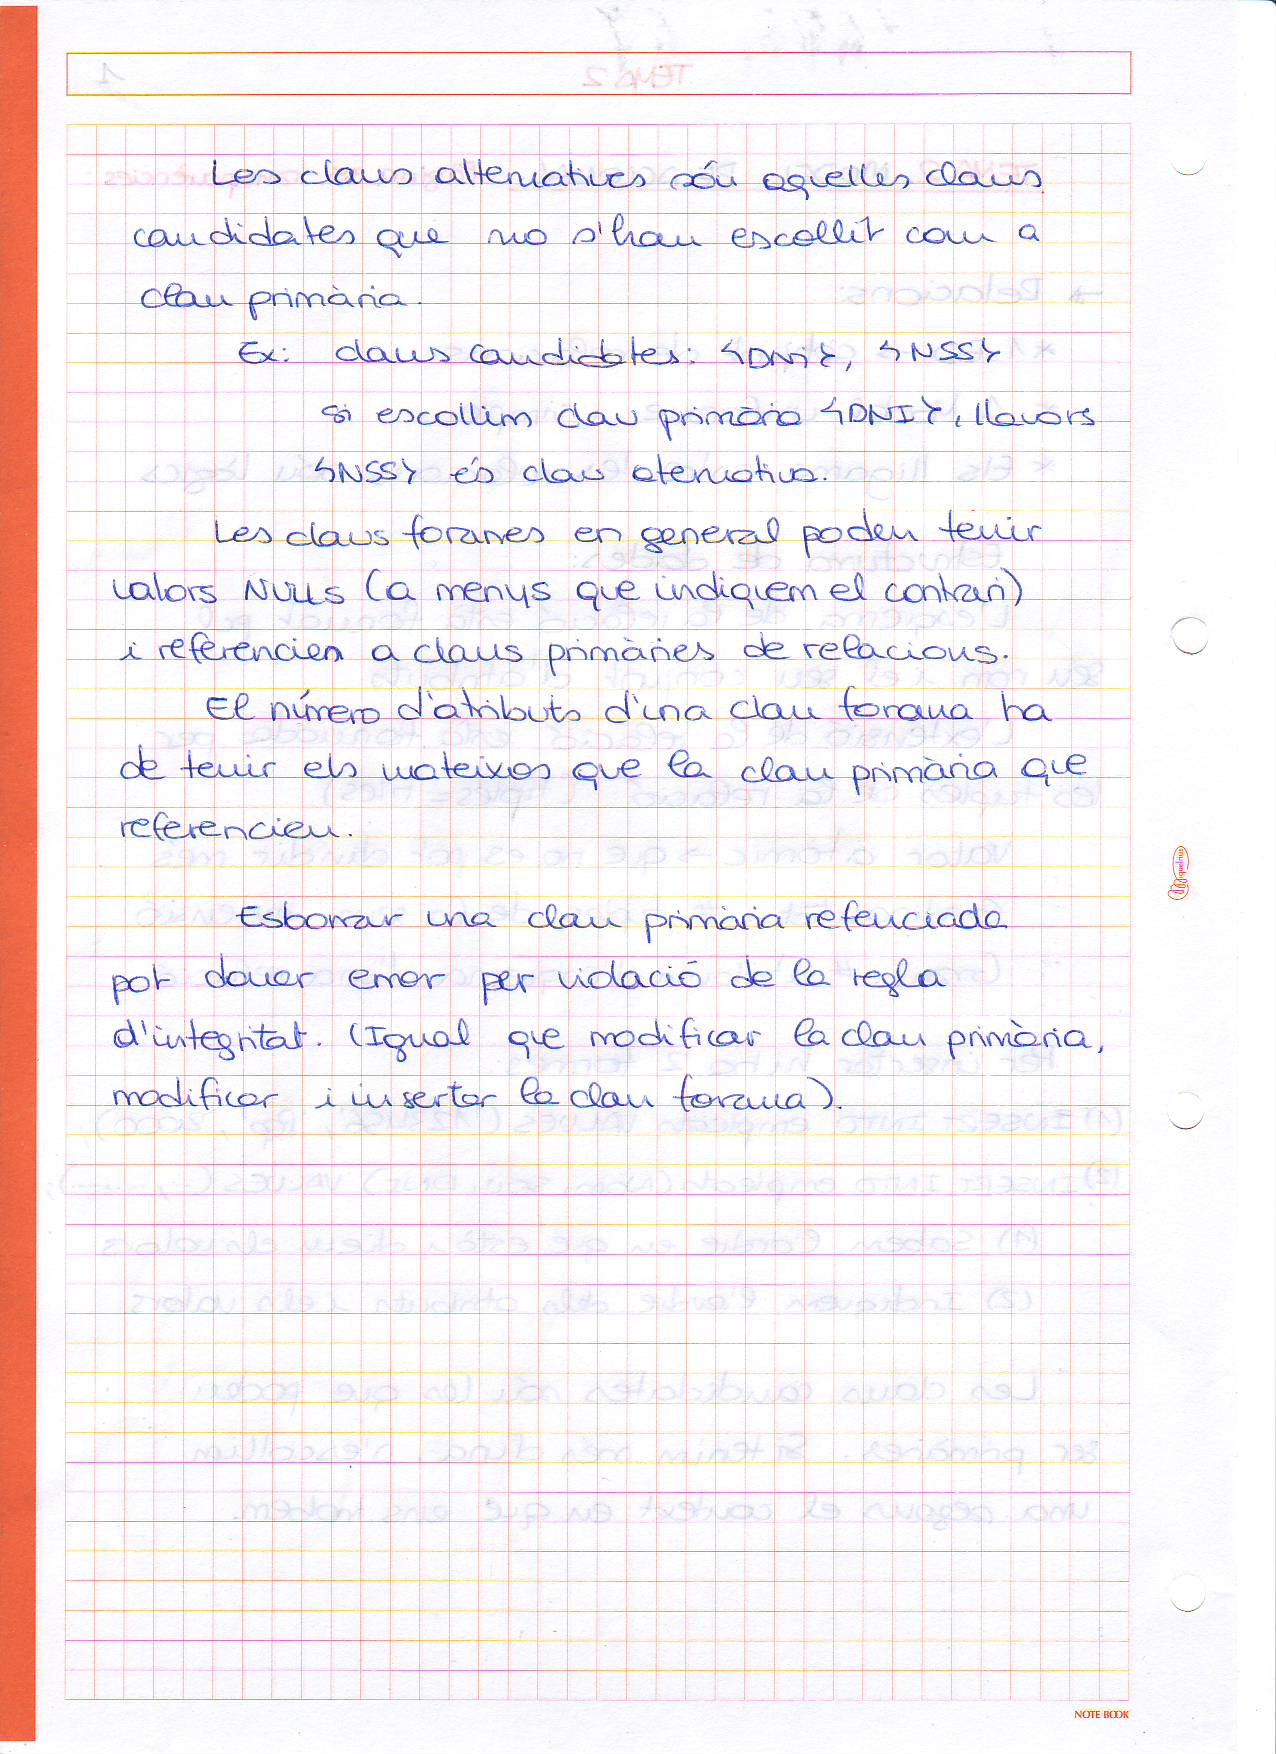 Les claus alternatives són aquelles claus
candidates que no s'han escollit com a
clau primària.
Ex: claus candidates: {DNI}, {NSS}
si escollim clau primària {DNI}, llavors
{NSS} és clau aternativa.
Les claus foranes en general poden tenir
valors NULLS (a menys que indiquem el contrari)
i referencien a claus primàries de relacions.
El número d'atributs d'una clau forana ha
de tenir els mateixos que la clau primària que
referencien.
Esborrar una clau primària refenciada
pot donar error per violació de la regla
d'integritat. (Igual que modificar la clau primària,
modificar i insertar la clau forana).
miquelrius
NOTE BOOK